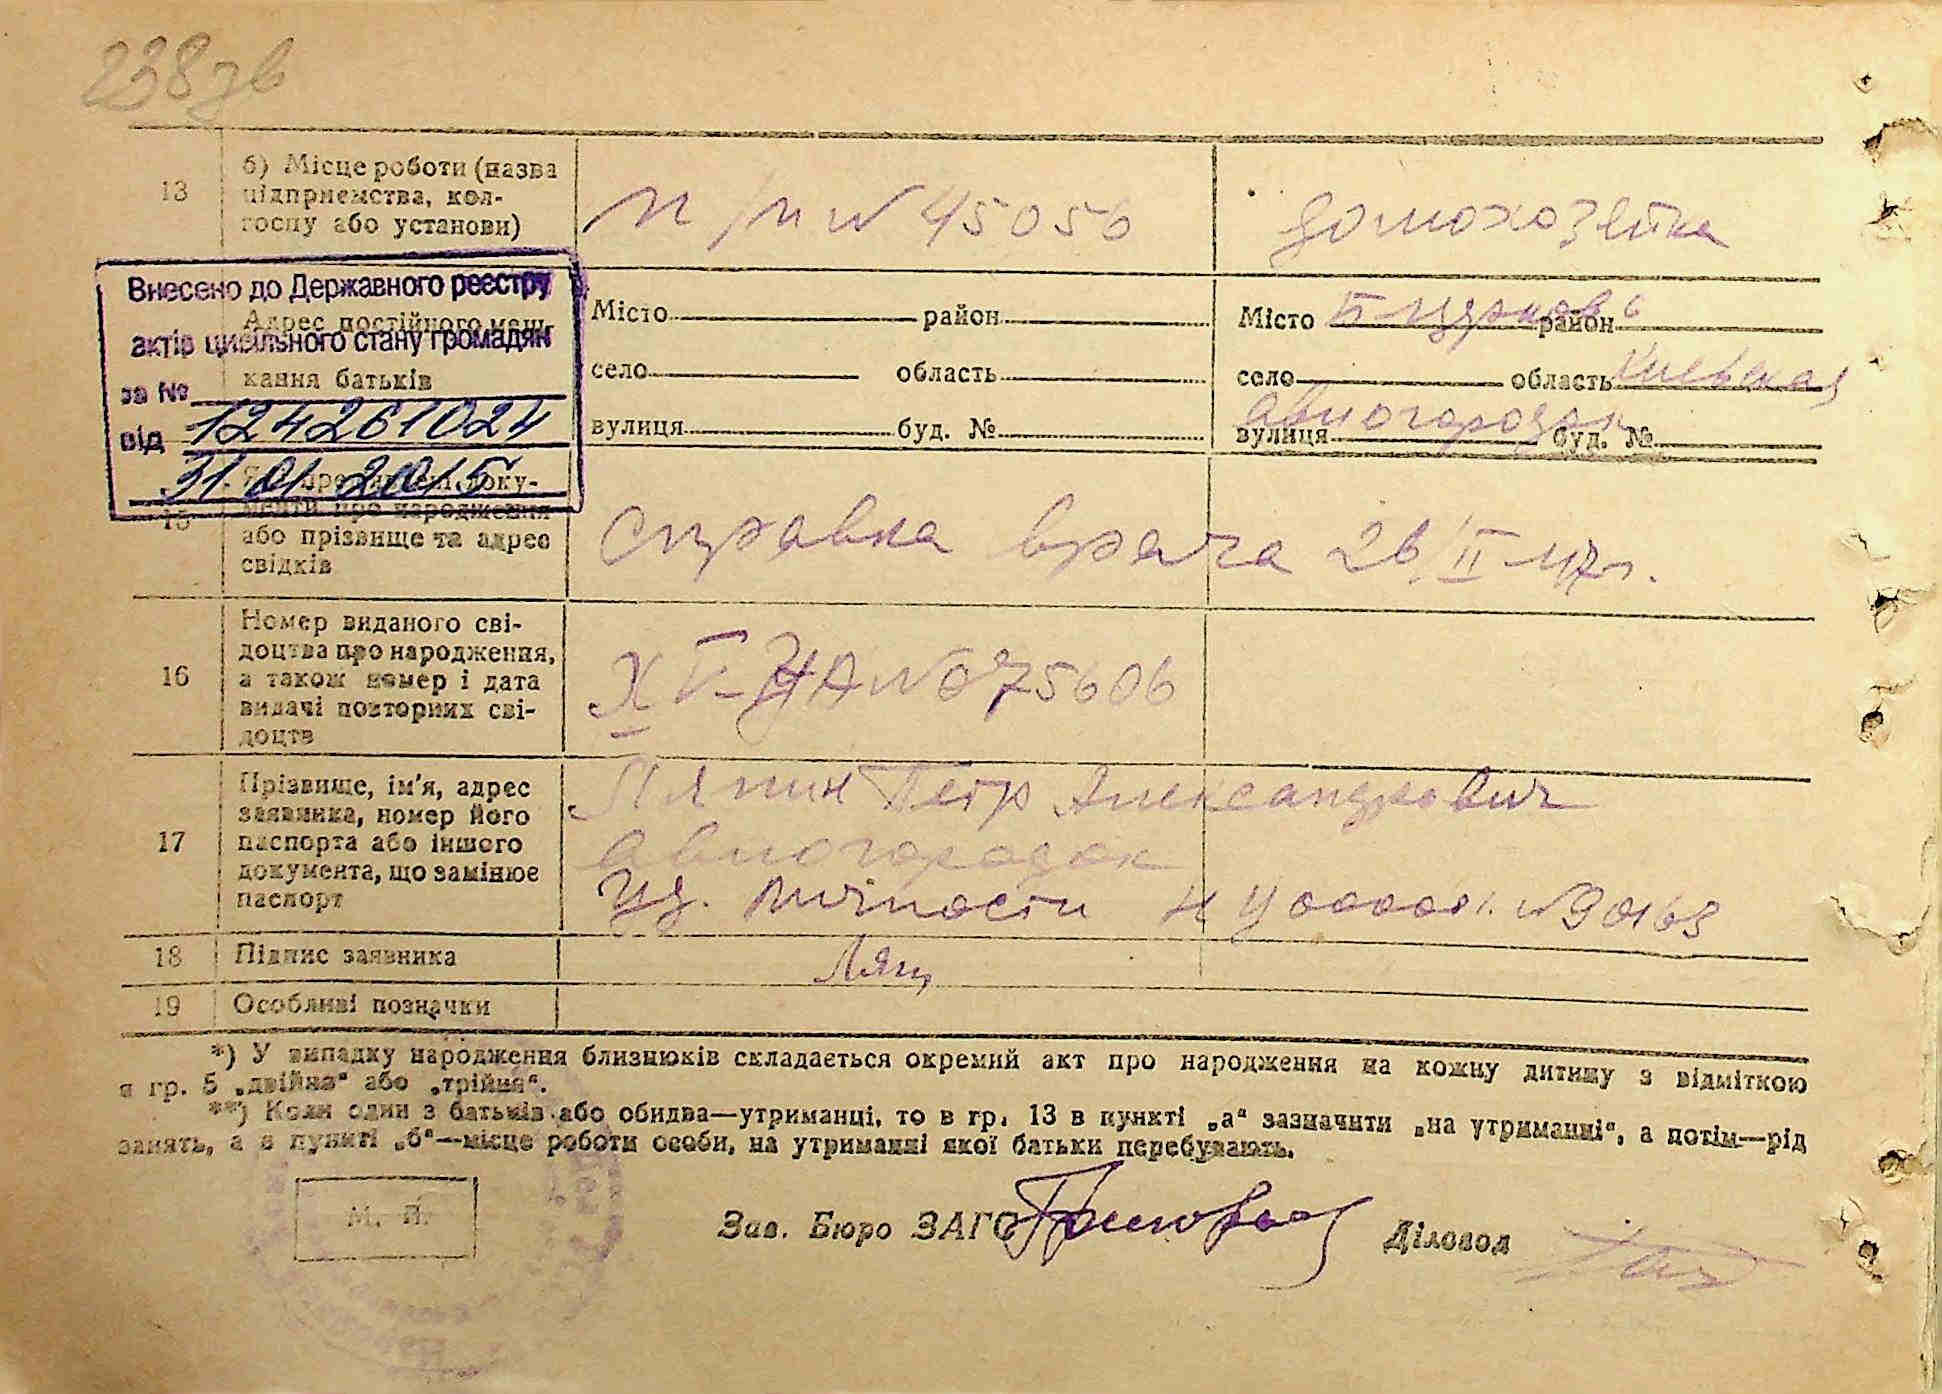 238 зв
13
б) Місце роботи (назва
підприємства, кол-
госпу або установи)
п/п N 45056
домохозяйка
Внесено до Державного реєстру
актів цивільного стану громадян
за №
124261024
від
31.01.2015
Адрес постійного меш-
кання батьків
Місто район
село область
вулиця буд. №
Місто Б Церковь район
село область Киевская
авиогородок
вулиця буд. №
15
доку-
менти про народження
або прізвище та адрес
свідків
Справка врача 26/II 47 г.
16
Номер виданого сві-
доцтва про народження,
а також номер і дата
видачі повторних сві-
доцтв
N 075606
17
Прізвище, ім'я, адрес
заявника, номер його
паспорта або іншого
документа, що замінює
паспорт
Ляпин Петр Александрович
авиогородок
Уд. личности
18
Підпис заявника
19
Особливі позначки
*) У випадку народження близнюків складається окремий акт про народження на кожну дитину з відміткою
в гр. 5 „двійня“ або „трійня“.
**) Коли один з батьків або обидва—утриманці, то в гр. 13 в пункті „а“ зазначити „на утриманні“, а потім—рід
занять, а в пункті „б“—місце роботи особи, на утриманні якої батьки перебувають.
М. П.
Зав. Бюро ЗАГС
Діловод